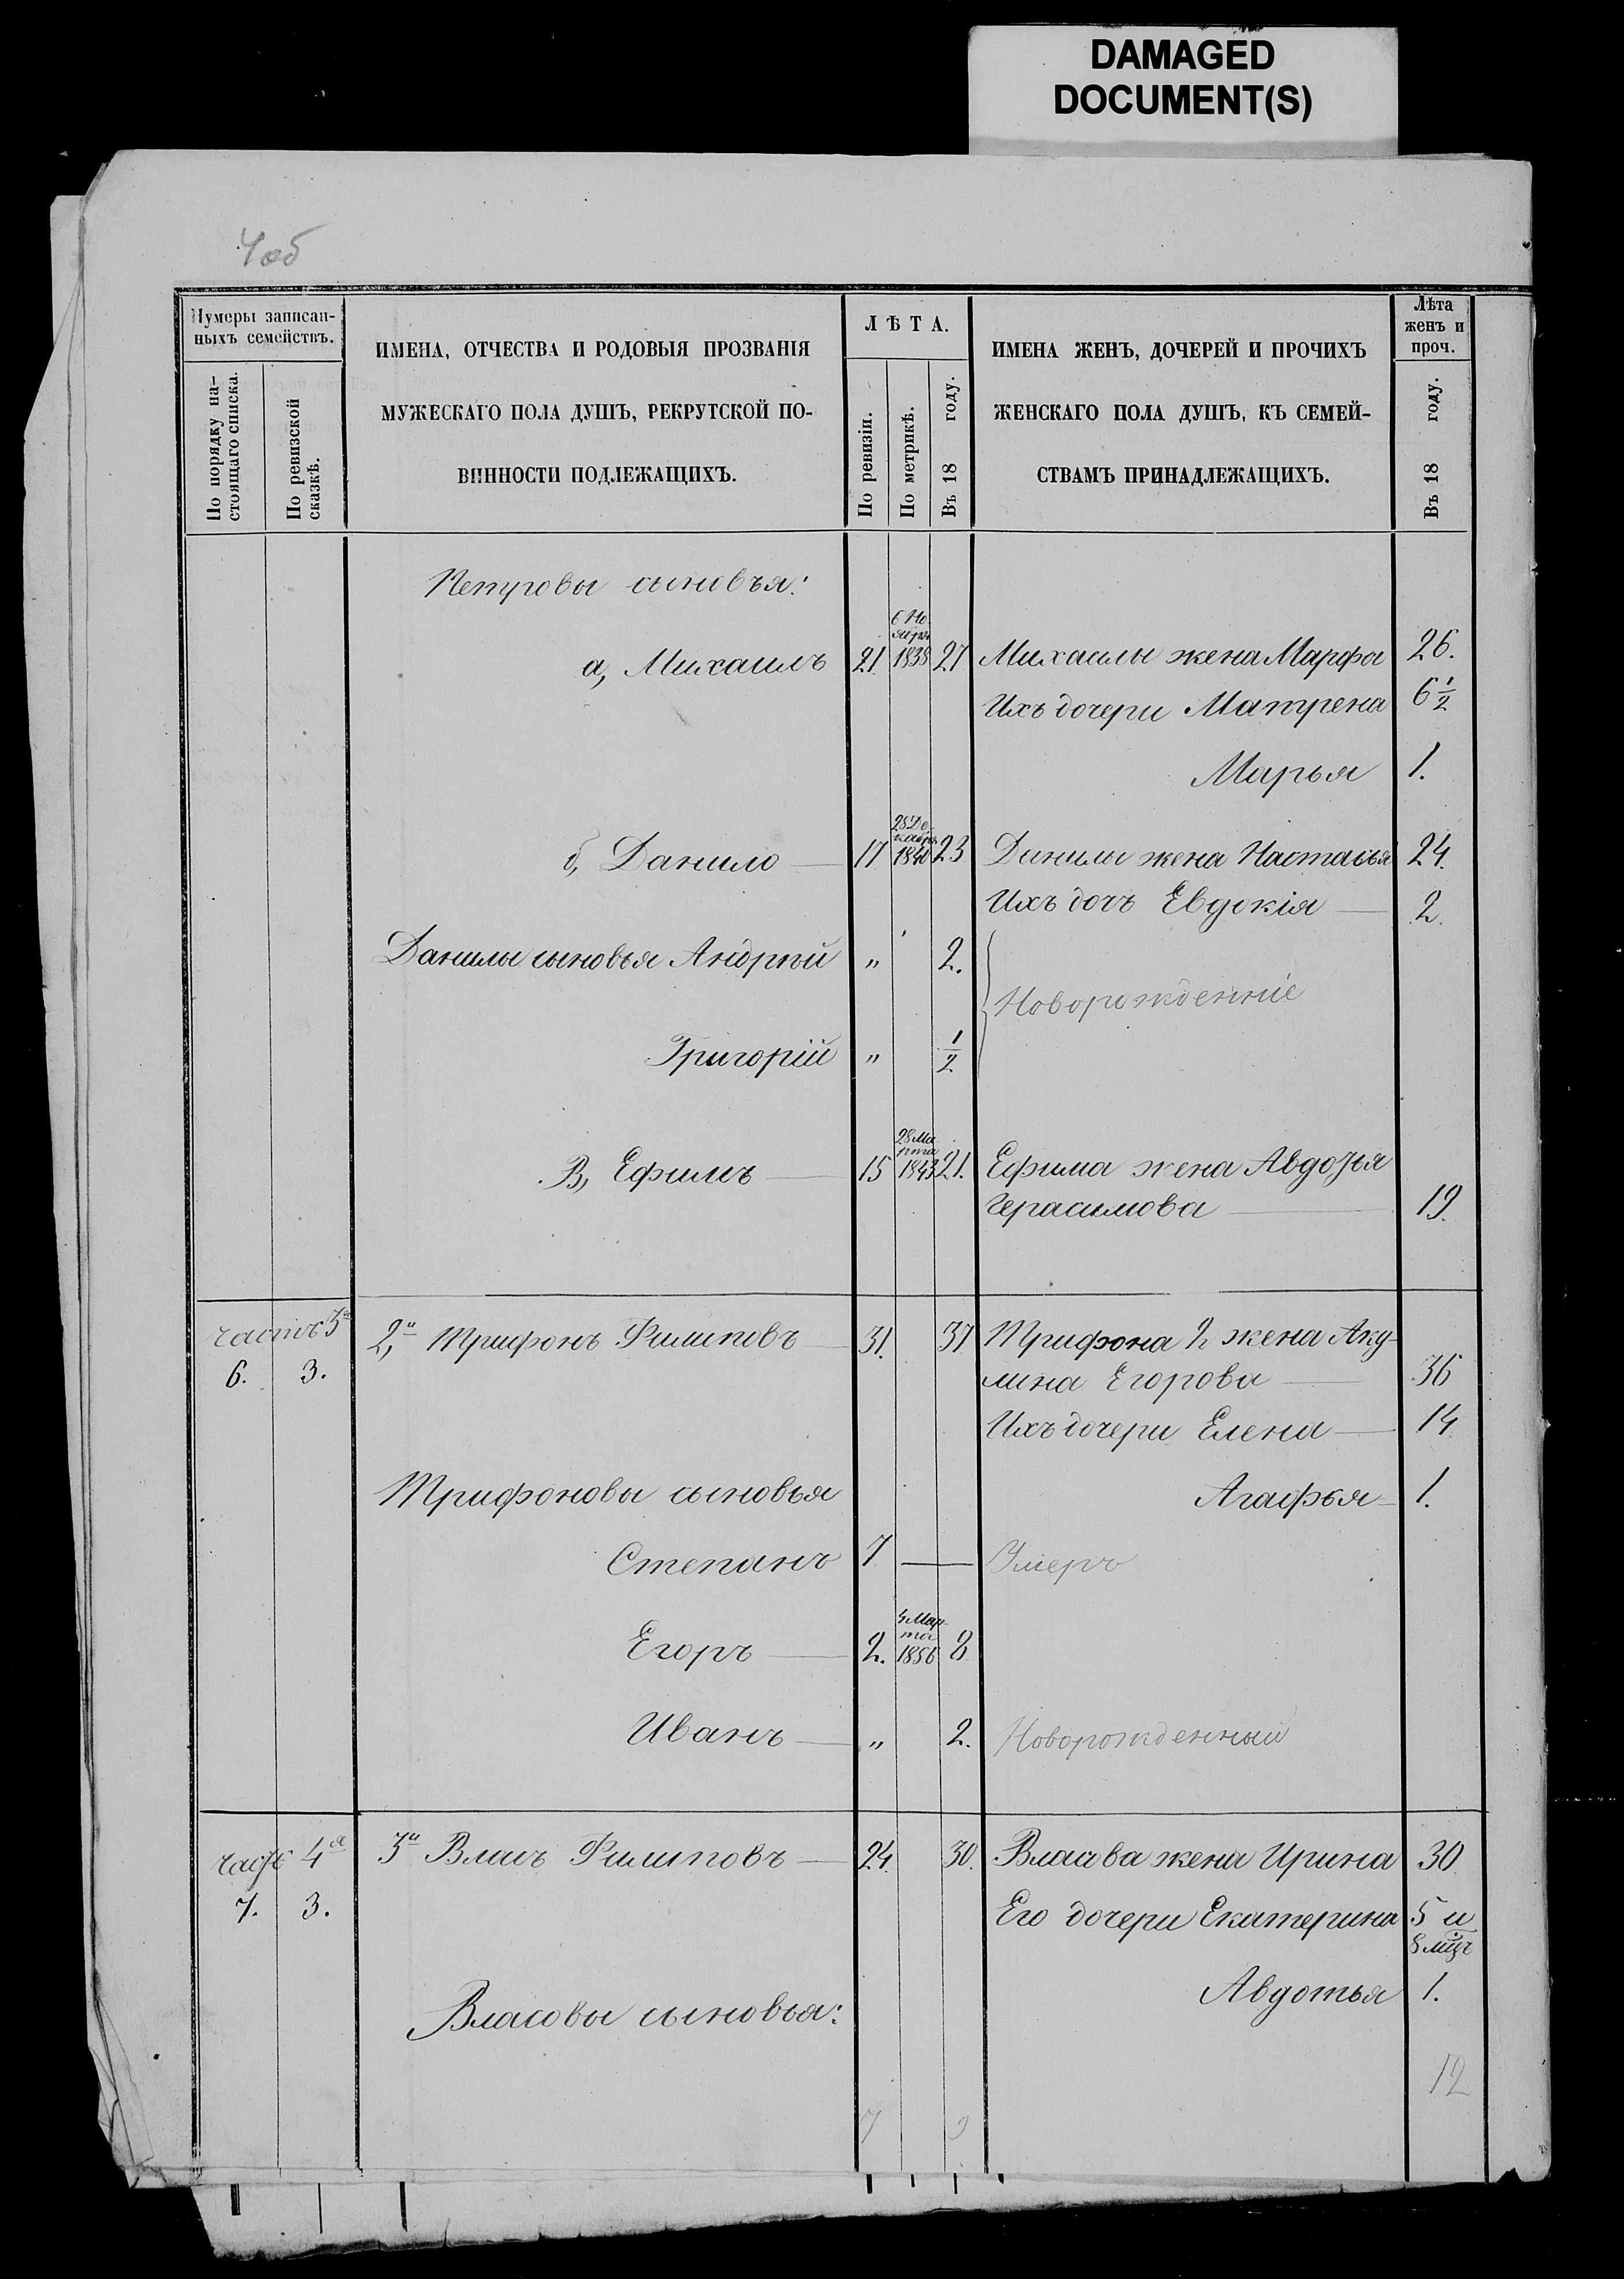 DAMAGED
DOCUMENT(S)
4об
Нумеры записан-
ныхъ семействъ.
По порядку на-
стоящаго списка.
По ревизской
сказкѣ.
ИМЕНА, ОТЧЕСТВА И РОДОВЫЯ ПРОЗВАНІЯ
МУЖЕСКАГО ПОЛА ДУШЪ, РЕКРУТСКОЙ ПО-
ВИННОСТИ ПОДЛЕЖАЩИХЪ.
ЛѢТА.
По ревизіи.
По метрикѣ.
Въ 18 году.
ИМЕНА ЖЕНЪ, ДОЧЕРЕЙ И ПРОЧИХЪ
ЖЕНСКАГО ПОЛА ДУШЪ, КЪ СЕМЕЙ-
СТВАМЪ ПРИНАДЛЕЖАЩИХЪ.
Лѣта
женъ и
проч.
Въ 18 году.
Петровы сыновья:
6 Но
ября
а, Михаилъ 21 1838 27 Михаилы жена Марфа 26.
Ихъ дочери Матрена 6 1/2
Марья 1.
28 Де-
кабря
б, Данило — 17 1840 23 Данилы жена Настасья 24.
Ихъ дочь Евдокія — 2.
Данилы сыновья Андрей " 2.
Новорожденніе
Григорій " 1/2
28 Ма
рта
В, Ефимъ — 15 1843 21. Ефима жена Авдотья
Герасимова — 19.
часть 3я 2,й Трифонъ Филиповъ — 31. 37 Трифона 2 жена Аку-
6. 3. лина Егорова — 36
Ихъ дочери Елена — 14
Трифоновы сыновья Агафья — 1.
Степанъ 7 — Умеръ
4 Мар
та
Егоръ — 2. 1856 8
Иванъ — " 2. Новорожденный
часть 4я 3й Власъ Филиповъ — 24. 30. Власава жена Ирина 30
7. 3. Его дочери Екатерина 5 и
8 мцъ
Авдотья 1.
Власовы сыновья:
12
7 9